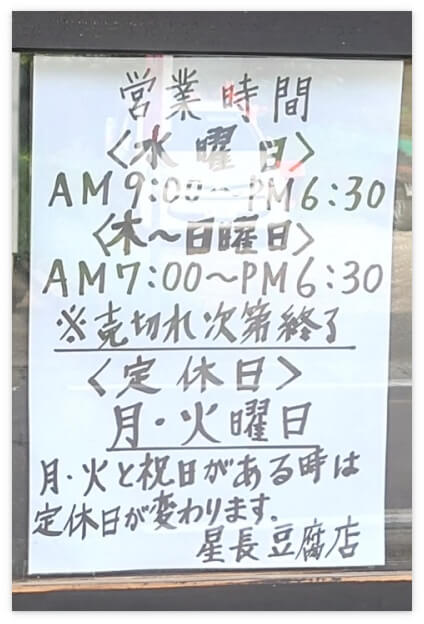 営業時間
<水曜日>
AM9:00〜PM6:30
<木〜日曜日>
AM7:00〜PM6:30
※売切れ次第終了
<定休日>
月・火曜日
月・火と祝日がある時は
定休日が変わります。
星長豆腐店